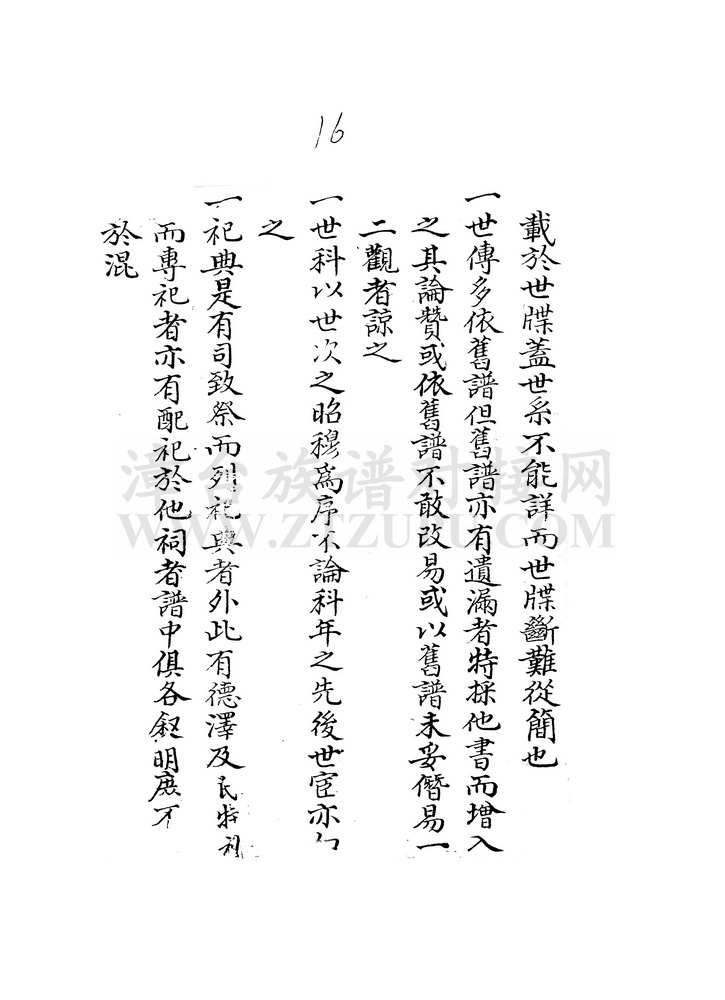 16
載於世牒蓋世系不能詳而世牒斷難從簡也
一世傳多依舊譜但舊譜亦有遺漏者特採他書而增入
之其論贊或依舊譜不敢改易或以舊譜未妥僭易一
二觀者諒之
一世科以世次之昭穆為序不論科年之先後世宦亦
之
一祀典是有司致祭而列祀典者外此有德澤及民特
而專祀者亦有配祀於他祠者譜中俱各敘明庶不
於混
漳台族谱对接网
WWW.ZTZUPU.COM